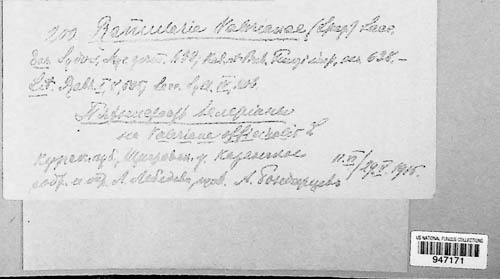 200 Ramularia Valerianae (Speg) Sacc.
Exs. Sydow, Myc. germ. 139; Kab. et Bub. Fungi imp. exs. 638. –
Lit. Sacc. Syll. IV, 208
Пятнистость валерианы
на Valeriana officinalis L
Курск. губ., Щигровск. у. Казанское
собр. и опр. Л. Лебедева, пров. А. Бондарцевъ
11.VI/29.V.1915.
US NATIONAL FUNGUS COLLECTIONS
947171